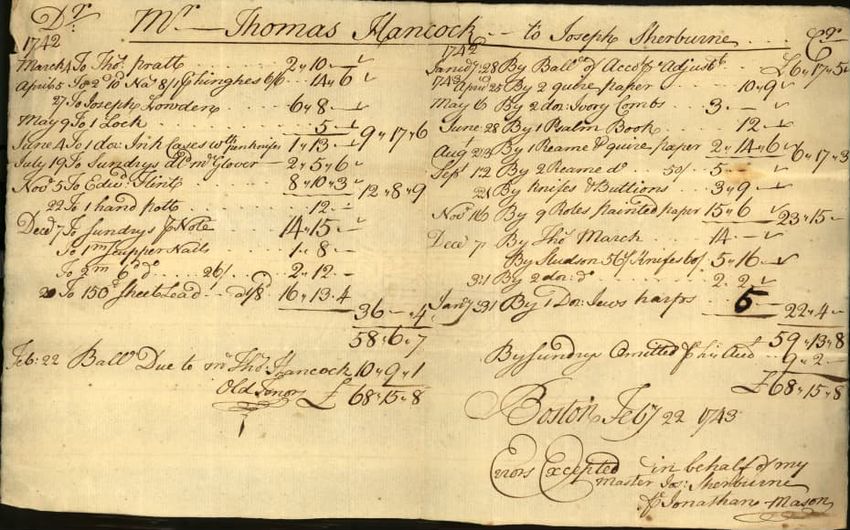 Dr. Mr. Thomas Hancock to Joseph Sherburne Cr.
1742
March 4 To Tho: pratt 2 " 10 " ~
April 5 To 2 10 Nas 8/1 & hinghes 6/6 " 14 " 6
27 To Joseph Lowden 6 " 8 -
May 9 To 1 Lock 5 - 9 " 17 " 6
June 4 To 1 do: Ink Cases wth penknifes 1 " 13 -
July 19 To Sundrys dd. mr Glover 2 " 5 " 6
Nov: 5 To Edwd. Flint 8 " 10 " 3 12 " 8 " 9
22 To 1 hand pott 12 -
Decr 7 To Sundrys p Note 14 " 15 -
To 1m Scupper Nails 1 " 8 -
To 2m 6d do. 26/ 2 " 12 -
20 To 150 Sheet Lead 16 " 13 . 4
36 - " 4
58 " 6 " 7
Feb: 22 Balla Due to mr Tho: Hancock 10 " 9 " 1
Old Tenor £ 68 " 15 " 8
1742
Janry: 28 By Balla of Acco p Adjustt £6 " 17 " 5
1743 April 25 By 2 quire paper 10 " 9
May 6 By 2 doz: Ivory Combs 3 -
June: 28 By 1 Psalm Book 12 -
Augt 23 By 1 Reame & quire paper 2 " 14 " 6 6 " 17 " 3
Sept 12 By 2 Reame do 50/ 5 -
21 By Knifes & Buttons 3 " 9 -
Nov: 16 By 9 Roles painted paper 15 " 6 23 " 15 -
Decr 7 By Tho: March 14 -
By Hudson 56/ Knifes 60/ 5 " 16 -
31 By 2 doz: do 2 " 2
Janry: 31 By 1 Doz: Jews harps 5 22 " 4 -
59 " 13 " 8
By Sundrys Omitted 9 " 2 -
£68 " 15 " 8
Boston Feby 22 1743
Errors Excepted in behalf of my
master Jos: Sherburne
p Jonathan Mason